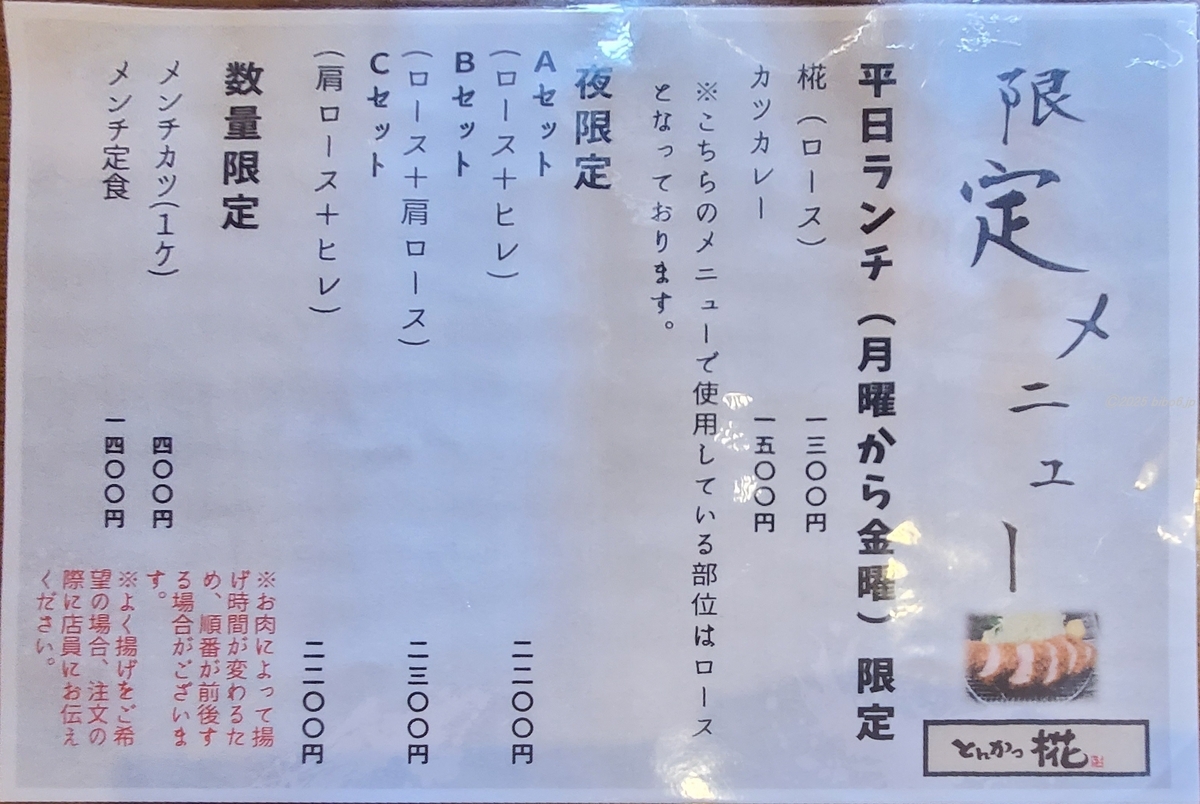 限定メニュー
とんかつ 椛
平日ランチ（月曜から金曜）限定
椛（ロース） 一三〇〇円
カツカレー 一五〇〇円
※こちらのメニューで使用している部位はロース
となっております。
夜限定
Aセット
（ロース＋ヒレ） 二二〇〇円
Bセット
（ロース＋肩ロース） 二三〇〇円
Cセット
（肩ロース＋ヒレ） 二二〇〇円
数量限定
メンチカツ(1ケ) 四〇〇円
メンチ定食 一四〇〇円
※お肉によって揚
げ時間が変わるた
め、順番が前後す
る場合がございま
す。
※よく揚げをご希
望の場合、注文の
際に店員にお伝え
ください。